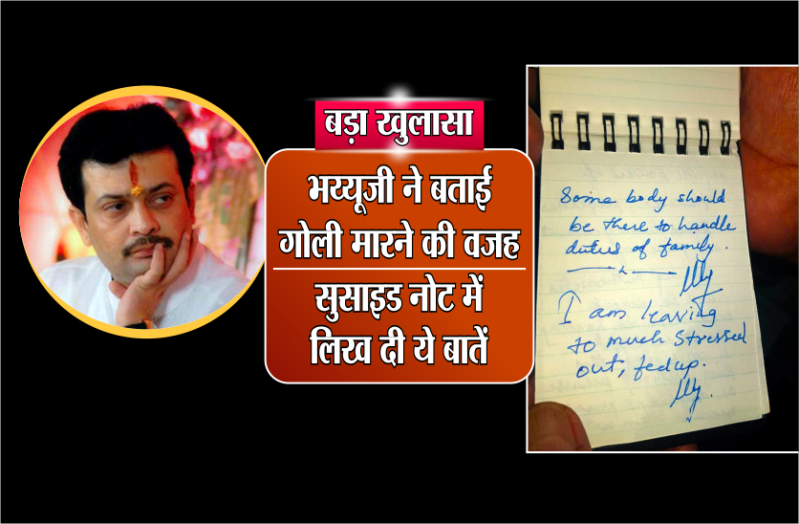 बड़ा खुलासा
भय्यूजी ने बताई
गोली मारने की वजह
सुसाइड नोट में
लिख दी ये बातें
Some body should
be there to handle
duties of family.
I am leaving
to much stressed
out, fedup.